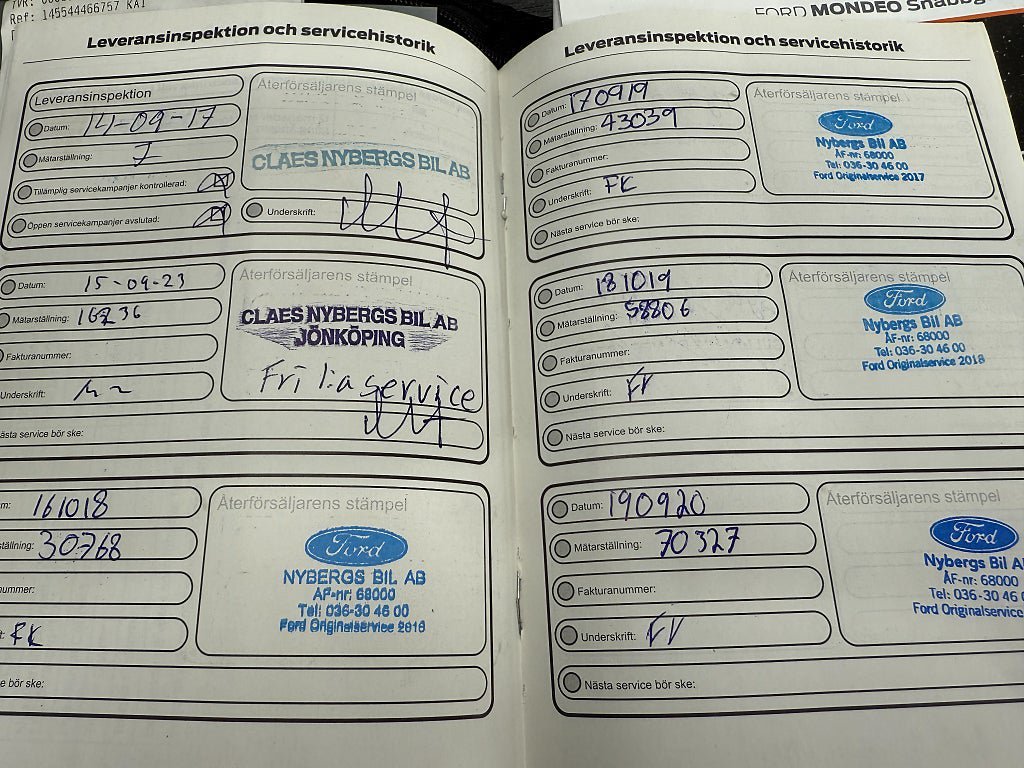 Ref: 145544466757 KAI
FORD MONDEO Snabbg
Leveransinspektion och servicehistorik
Leveransinspektion
Datum: 14-09-17
Mätarställning: 7
Tillämplig servicekampanjer kontrollerad:
Öppen servicekampanjer avslutad:
Återförsäljarens stämpel
CLAES NYBERGS BIL AB
Underskrift:
Datum: 15-09-23
Mätarställning: 16236
Fakturanummer:
Underskrift:
Nästa service bör ske:
Återförsäljarens stämpel
CLAES NYBERGS BIL AB
JÖNKÖPING
Fri 1:a service
m: 161018
ställning: 30768
nummer:
t: FK
e bör ske:
Återförsäljarens stämpel
Ford
NYBERGS BIL AB
ÅF-nr: 68000
Tel: 036-30 46 00
Ford Originalservice 2016
Leveransinspektion och servicehistorik
Datum: 170919
Mätarställning: 43039
Fakturanummer:
Underskrift: FK
Nästa service bör ske:
Återförsäljarens stämpel
Ford
Nybergs Bil AB
ÅF-nr: 68000
Tel: 036-30 46 00
Ford Originalservice 2017
Datum: 181019
Mätarställning: 58806
Fakturanummer:
Underskrift:
Nästa service bör ske:
Återförsäljarens stämpel
Ford
Nybergs Bil AB
ÅF-nr: 68000
Tel: 036-30 46 00
Ford Originalservice 2018
Datum: 190920
Mätarställning: 70327
Fakturanummer:
Underskrift:
Nästa service bör ske:
Återförsäljarens stämpel
Ford
Nybergs Bil A
ÅF-nr: 68000
Tel: 036-30 46 0
Ford Originalservice